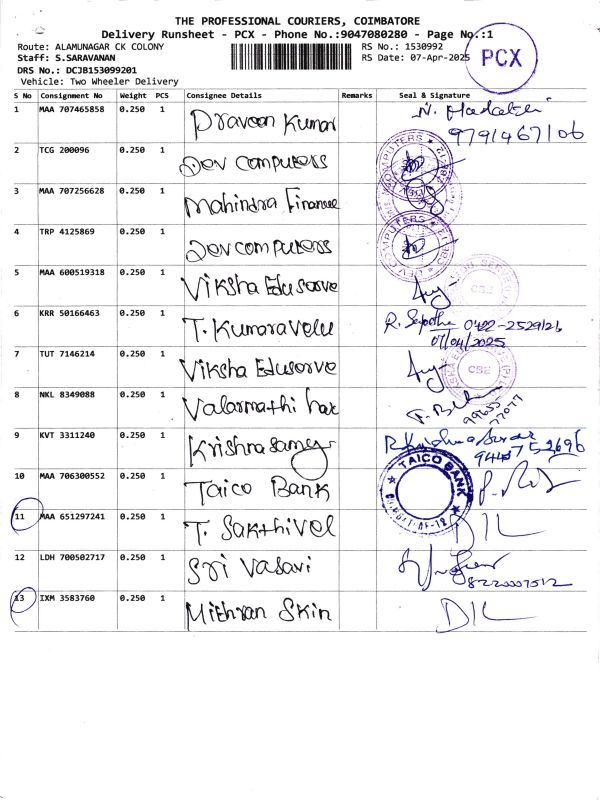 THE PROFESSIONAL COURIERS, COIMBATORE
Delivery Runsheet - PCX - Phone No.:9047080280 - Page No.:1
Route: ALAMUNAGAR CK COLONY RS No.: 1530992
Staff: S.SARAVANAN RS Date: 07-Apr-2025 PCX
DRS No.: DCJB153099201
Vehicle: Two Wheeler Delivery
S No Consignment No Weight PCS Consignee Details Remarks Seal & Signature
1 MAA 707465858 0.250 1 Praveen Kumar
9791467106
2 TCG 200096 0.250 1 Dev computers
3 MAA 707256628 0.250 1 Mahindra Finance
4 TRP 4125869 0.250 1 Dev computers
5 MAA 600519318 0.250 1 Viksha Eduserve CBE
6 KRR 50166463 0.250 1 T. Kumaravelu 0422-2529126
07/04/2025
7 TUT 7146214 0.250 1 Viksha Eduserve CBE
8 NKL 8349088 0.250 1 Valarmathi
99655
77077
9 KVT 3311240 0.250 1 Krishnasamy
10 MAA 706300552 0.250 1 Taico Bank TAICO BANK
11 MAA 651297241 0.250 1 T. Sakthivel D/L
12 LDH 700502717 0.250 1 Sri Vasavi
8220007512
13 IXM 3583760 0.250 1 Mithran Skin D/L